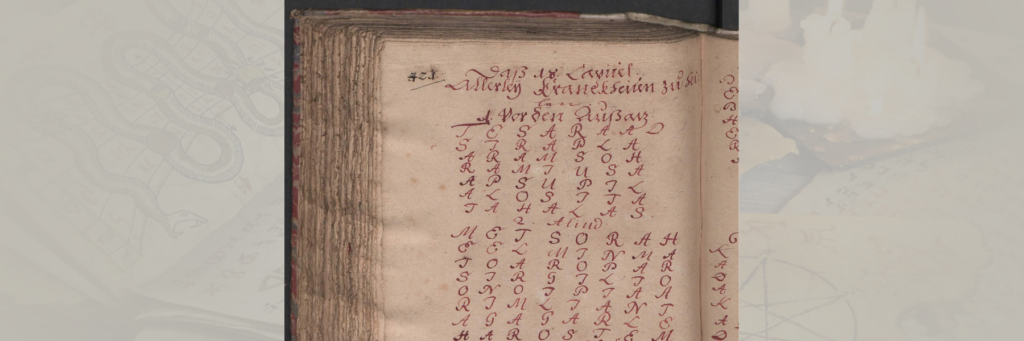 421.
Daß 18. Capitel
Allerley Kranckheiten zu hei
len
1. Vor den Außaz
T E S A R A A D
S T R A P L A
A R A M S O H
R A M T U S A
A P S U P T L
A L O S T T A
T A H A L A S
2. Aliud
M E T S O R A H
E E L M T N M A
T O A R O P A R
S T R G T L T O
O N O T P T A M
R T M L T A N T
A G A G A R L E
H A R O S T E M